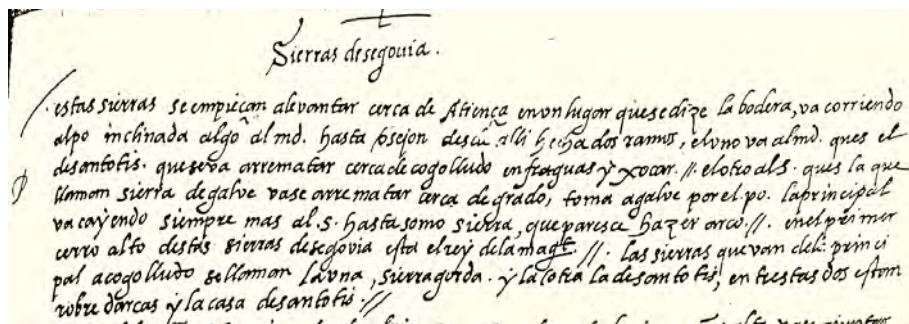 Sierras desegouia.
estas sierras se empieçan alevantar cerca de Atiença en un lugar que se dize la bodera, va corriendo
alpo inclinada algo al md. hasta osejon desci alli hecha dos ramos, el uno va al md. ques el
desantotis. que se va arrematar cerca de cogolludo en fraguas y xocar. // el otro al s. ques la que
llaman sierra de galve vase arrematar cerca de grado, toma a galve por el po. la principal
va cayendo siempre mas al .s. hasta somo sierra, que paresce hazer arco. //. en el primer
cerro alto destas sierras desegovia esta el rey de la magt. //. las sierras que van del: princi
pal a cogolludo se llaman la una, sierra gorda. y la otra la desantotis, entrestas dos estan
robre darcas y la casa desantotis. //